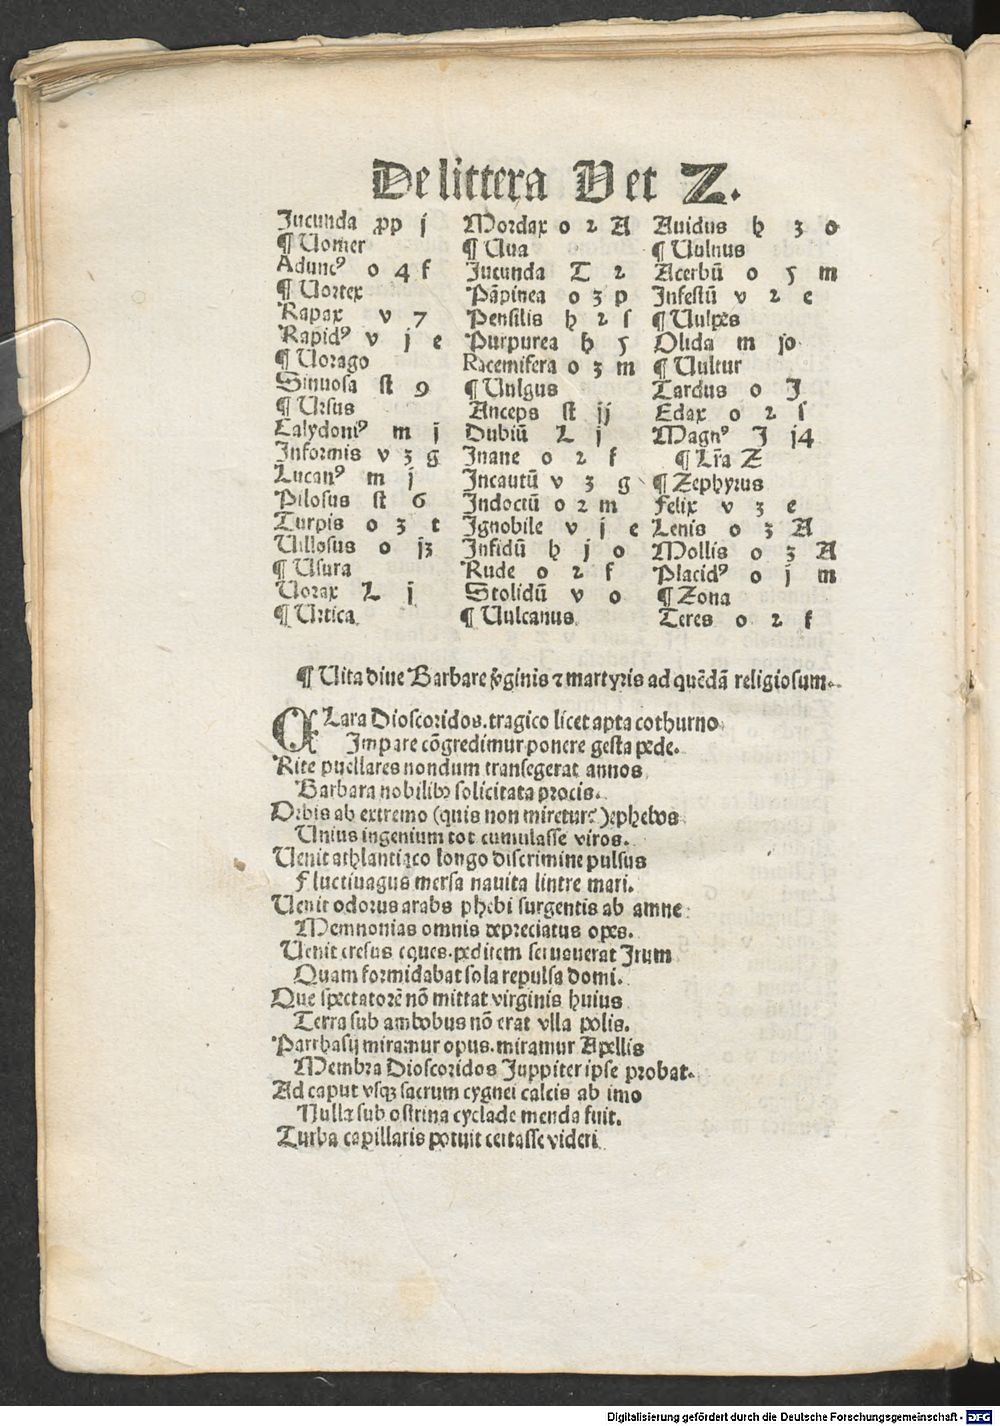 De littera V et Z.
Jucunda ꝓp j
¶ Uomer
Aduncꝰ o 4 f
¶ Uortex
Rapax v 7
Rapidꝰ v j e
¶ Uorago
Sinuosa st 9
¶ Ursus
Calydoniꝰ m j
Informis v 3 g
Lucanꝰ m j
Pilosus st 6
Turpis o 3 t
Uillosus o j3
¶ Usura
Uorax L j
¶ Urtica
Mordax o 2 A
¶ Uua
Jucunda T 2
Pāpinea o 3 p
Pensilis h 2 s
Purpurea h 5
Racemifera o 3 m
¶ Uulgus
Anceps st jj
Dubiū L j
Inane o 2 f
Incautū v 3 g
Indoctū o 2 m
Ignobile v j e
Infidū h j o
Rude o 2 f
Stolidū v o
¶ Uulcanus
Auidus h 3 o
¶ Uulnus
Acerbū o 5 m
Infestū v 2 e
¶ Uulpes
Olida m jo
¶ Uultur
Tardus o J
Edax o 2 s
Magnꝰ J j4
¶ Lr̄a Z
¶ Zephyrus
Felix v 3 e
Lenis o 3 A
Mollis o 3 A
Placidꝰ o j m
¶ Zona
Teres o 2 f
¶ Uita diue Barbare v̄ginis ⁊ martyris ad quēdā religiosum.
CLara Dioscoridos. tragico licet apta cothurno
Impare cōgredimur ponere gesta pede.
Rite puellares nondum transegerat annos
Barbara nobilibꝫ solicitata procis.
Orbis ab extremo (quis non miretur?) ephebos
Unius ingenium tot cumulasse viros.
Uenit athlantiaco longo discrimine pulsus
Fluctiuagus mersa nauita lintre mari.
Uenit odorus arabs phebi surgentis ab amne
Memnonias omnis depreciatus opes.
Uenit cresus eques. peditem seruauerat Irum
Quam formidabat sola repulsa domi.
Que spectatorē nō mittat virginis huius
Terra sub ambobus nō erat vlla polis.
Parrhasij miramur opus. miramur Apellis
Membra Dioscoridos Juppiter ipse probat.
Ad caput vsqꝫ sacrum cygnei calcis ab imo
Nulla sub ostrina cyclade menda fuit.
Turba capillaris potuit certasse videri
Digitalisierung gefördert durch die Deutsche Forschungsgemeinschaft - DFG